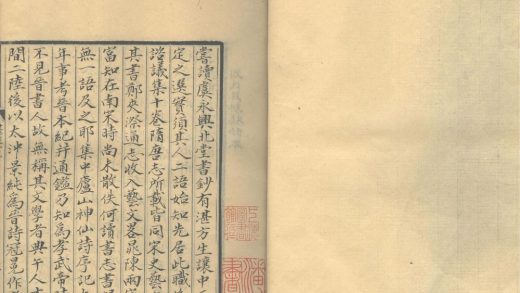 嘗讀虞永興北堂書鈔有湛方生讓中
定之選實須其人二語始知先居此職
諮議集十卷隋唐志所載皆同宋史藝
其書鄭夾漈通志收入藝文略晁陳兩
富知在南宋時尚未散佚何讀書志書
無一語及之耶集中廬山神仙詩序記
年事考晉本紀拜通鑑乃知為孝武帝
不見晉書人故無稱其文學者與午人
間二陸後以太沖景純為晉詩冠冕作